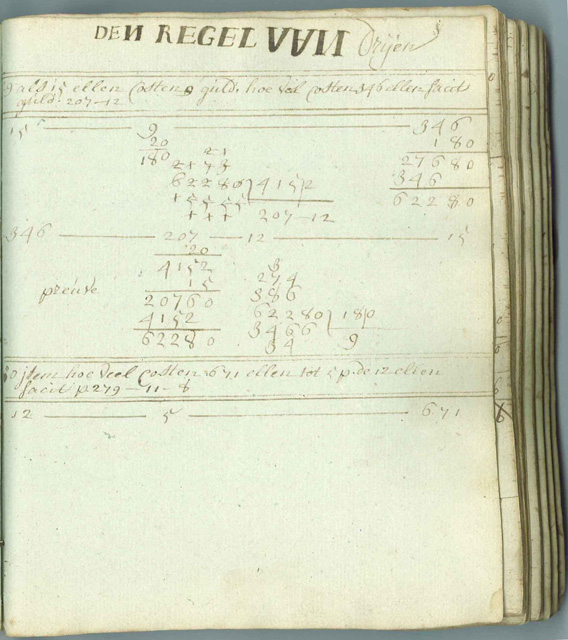 DEN REGEL VAN Drijen
9 als 15 ellen Costen 9 guld: hoe vil Costen 346 ellen facit
guld: 207-12
15 9 346
20 180
180 27680
346
62280
21
2173
62280 4152
15555 207-12
111
346 207 12 15
20
4152
15
20760
4152
62280
preuve
3
274
386
62280 180
3466 9
34
10 jtem hoe veel Costen 671 ellen tot 5 p de 12 ellen
facit p 279-11-8
12 5 671